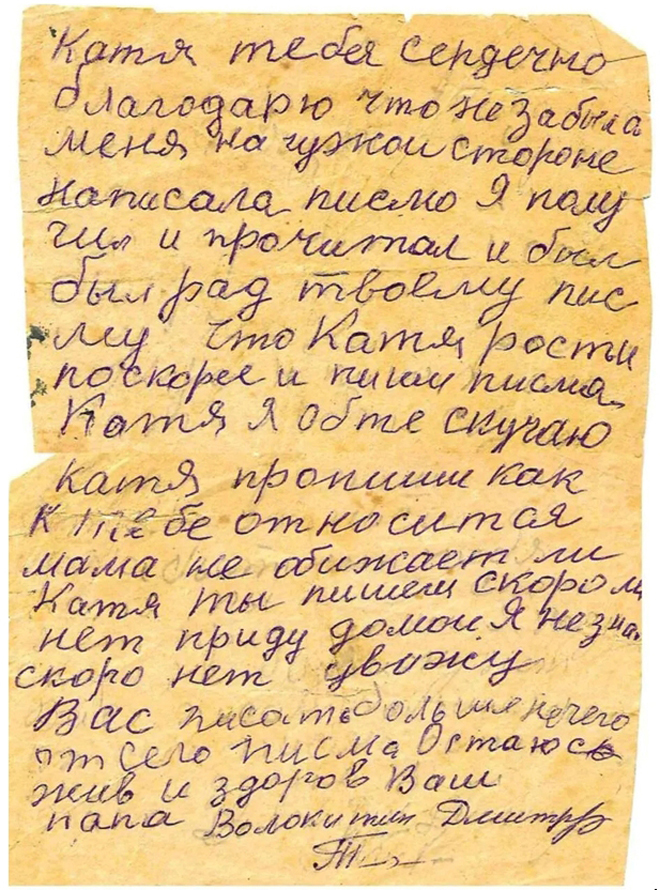 Катя тебя сердечно
благодарю что не забыла
меня на чужои стороне
написала писмо Я полу
чил и прочитал и был
был рад твоему пис
му что Катя рости
поскорее и пиши писма
Катя я обте скучаю
Катя пропиши как
к тебе относится
мама не обижает ли
Катя ты пишеш скоро ли
нет приду домои Я незнаю
скоро нет увижу
Вас писать больше нечего
отсего писма Остаюсь
жив и здоров Ваш
папа Волокитин Дмитр